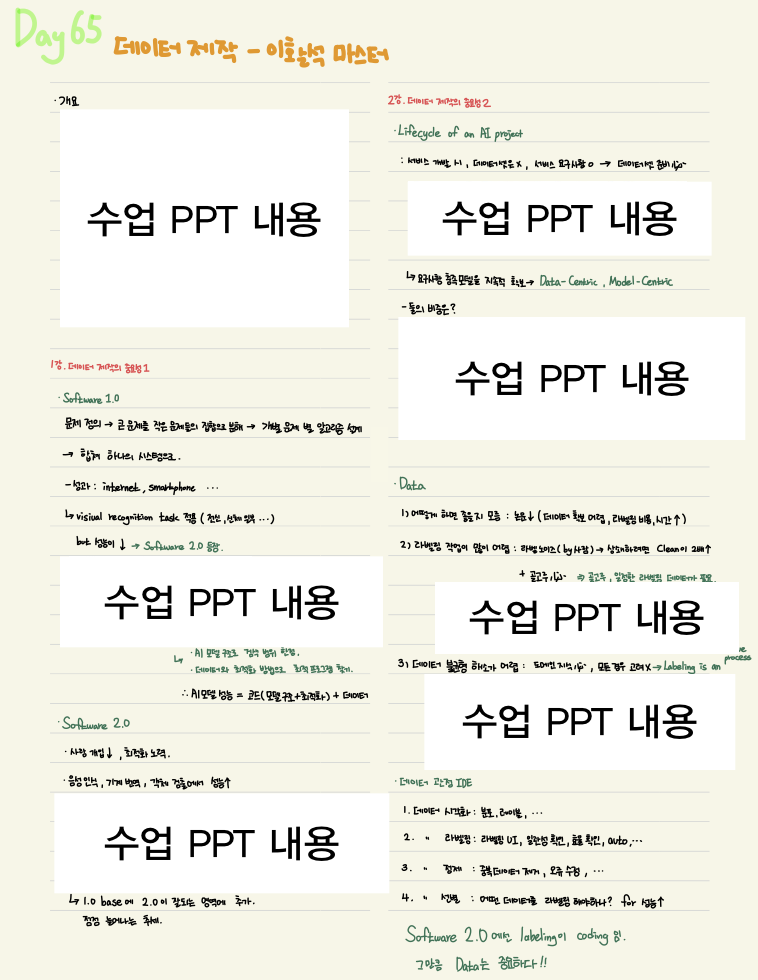 Day 65
데이터 제작 - 이호낡석 마스터
· 개요
수업 PPT 내용
1강. 데이터 제작의 중요성 1
· Software 1.0
문제 정의 → 큰 문제를 작은 문제들의 집합으로 분해 → 개별 문제 별 알고리즘 설계
→ 합쳐 하나의 시스템으로.
- 성과 : internet, smartphone ···
↳ visiual recognition task 적용 ( 전신, 신체 일부 ···)
but 성능이 ↓ → Software 2.0 등장.
수업 PPT 내용
↳ · AI 모델 구조로 검색 범위 한정.
· 데이터와 최적화 방법으로 최적 프로그램 찾기.
∴ AI모델 성능 = 코드(모델구조+최적화) + 데이터
· Software 2.0
· 사람 개입↓, 최적화 노력.
· 음성인식, 기계 번역, 객체 검출에서 성능↑
수업 PPT 내용
↳ 1.0 base에 2.0이 잘되는 영역에 추가.
점점 늘어나는 추세.
2강. 데이터 제작의 중요성 2
· Lifecycle of an AI project
: 서비스 개발 시, 데이터셋은 x, 서비스 요구사항 o → 데이터셋 준비
수업 PPT 내용
↳ 요구사항 충족모델을 지속적 확보→ Data-Centric, Model-Centric
- 둘의 비중은?
수업 PPT 내용
· Data
1) 어떻게 하면 좋을지 모름 : 논문↓ (데이터 확보 어렵, 라벨링 비용, 시간 ↑)
2) 라벨링 작업이 많이 어렵 : 라벨노이즈( by사람) → 상쇄하려면 Clean이 2배↑
+ 골고루 ⇒ 골고루, 일정한 라벨링 데이터가 필요.
수업 PPT 내용
3) 데이터 불균형 해소가 어렵 : 도메인 지식, 모든경우 고려 x → Labeling is an
process
수업 PPT 내용
· 데이터 관점 IDE
1. 데이터 시각화 : 분포, 레이블, ···
2. " 라벨링 : 라벨링 UI, 일관성 확인, 효율 확인, auto, ···
3. " 정제 : 중복데이터 제거, 오류 수정, ···
4. " 선별 : 어떤 데이터를 라벨링 해야하나? for 성능↑
Software 2.0에선 labeling이 coding 임.
그만큼 Data는 중요하다!!